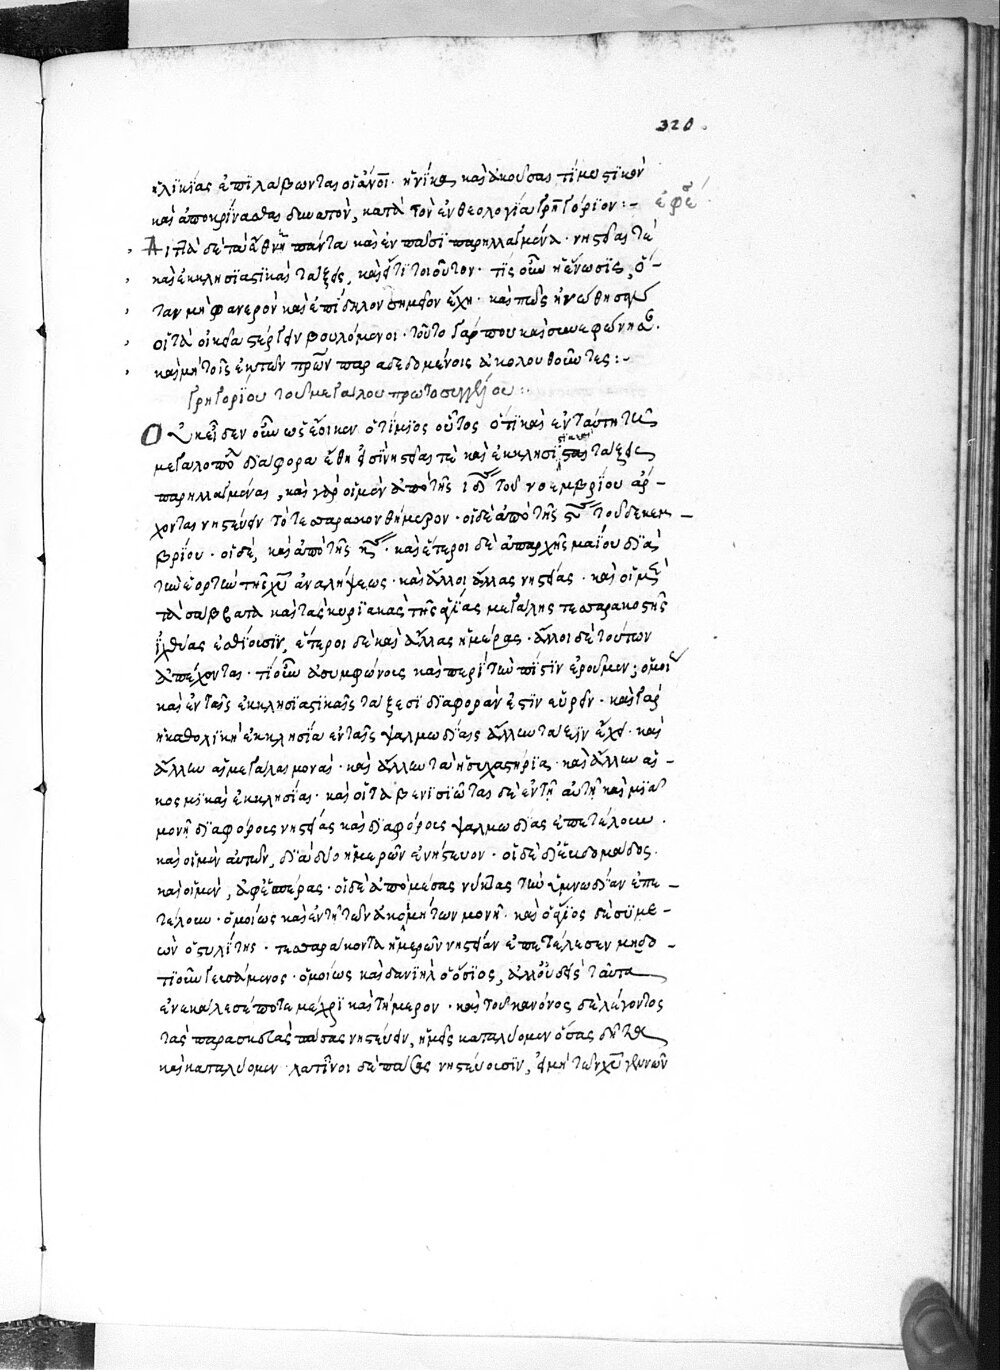 320.
ἡλικίας ἐπιλαβῶνται οἱ ἄνοι· ἡνίκα καὶ ἀκοῦσαι τίμιωτικὸν
καὶ ἀποκρίνασθαι δυνατὸν, κατὰ τὸν ἐν θεολογία Γρηγόριον:-
ἐφέ
Ἀλλὰ δὲ τὰ ἔθνη πάντα καὶ ἐν πᾶσι παρηλλαγμένα· νηστεῖαι τὲ
καὶ ἐκκλησιαστικαὶ τάξεις, καὶ εἴ τι τοιοῦτον· τίς οὖν ἡ ἕνωσις, ὅ-
ταν μὴ φανερὸν καὶ ἐπίδηλον σημεῖον ἔχη· καὶ πῶς ἡνώθησαν
οἱ τὰ οἰκεῖα στέργειν βουλόμενοι· τοῦτο γάρ που καὶ συνεφώνησαν·
καὶ μὴ τοῖς ἐκ τῶν πρῶν παραδεδομένοις ἀκολουθοῦντες:-
Γρηγορίου τοῦ μεγάλου πρωτοσυγγέλου:
Οὐκ εἶδεν οὖν ὡς ἔοικεν ὁ τίμιος οὗτος ὅτι καὶ ἐν ταύτη τῆ
μεγαλοπό διάφορα ἔθη εἰσὶ νηστεῖαι τὲ καὶ ἐκκλησιαστικαὶ τάξεις
παρηλλαγμέναι, καὶ γὰρ οἱ μὲν ἀπὸ τῆς ιδ τοῦ νοεμβρίου ἄρ-
χονται νηστεύειν τὸ τεσσαρακονθήμερον· οἱ δὲ ἀπὸ τῆς ϛ τοῦ δεκεμ-
βρίου· οἱ δὲ, καὶ ἀπὸ τῆς κ· καὶ ἕτεροι δὲ ἀπαρχῆς μαΐου διὰ
τὴν ἑορτὴν τῆς χυ ἀναλήψεως· καὶ ἄλλοι ἄλλας νηστείας· καὶ οἱ μὲν
τὰ σάββατα καὶ τὰς κυριακὰς τῆς ἁγίας μεγάλης τεσσαρακοστῆς
ἰχθύας ἐσθίουσιν, ἕτεροι δὲ καὶ ἄλλας ἡμέρας· ἄλλοι δὲ τούτων
ἀπέχονται· τί οὖν ἀσυμφώνοις καὶ περὶ τὴν πίστιν ἐροῦμεν; ὁμοι
καὶ ἐν ταῖς ἐκκλησιαστικαῖς τάξεσι διαφορὰν ἔστιν εὑρεῖν· καὶ γὰρ
ἡ καθολικὴ ἐκκλησία ἐν ταῖς ψαλμωδίαις ἄλλην τάξιν ἔχει· καὶ
ἄλλην αἱ μεγάλαι μοναὶ· καὶ ἄλλην τὰ ἡσυχαστήρια· καὶ ἄλλην αἱ
κοσμικαὶ ἐκκλησίαι· καὶ οἱ ταβενισιῶται δὲ ἐν τῆ αὐτῆ καὶ μιᾶ
μονῆ διαφόροις νηστείαις καὶ διαφόροις ψαλμωδίαις ἐπετέλουν.
καὶ οἱ μὲν αὐτῶν, διὰ δύο ἡμερῶν ἐνήστευον· οἱ δὲ δι' ἑβδομάδος·
καὶ οἱ μὲν, ἀφ' ἑσπέρας· οἱ δὲ ἀπὸ μέσας νύκτας τὴν ὑμνωδίαν ἐπε-
τέλουν· ὁμοίως καὶ ἐν τῆ τῶν ἀκοιμήτων μονῆ· καὶ ὁ ἅγιος δὲ συμε-
ὼν ὁ στυλίτης· τεσσαράκοντα ἡμερῶν νηστείαν ἐπετέλεσεν μηδο-
τιοῦν γευσάμενος· ὁμοίως καὶ δανιὴλ ὁ ὅσιος, ἀλλ' οὐδεὶς ταῦτα
ἐνεκάλεσέ ποτε μέχρι καὶ τήμερον· καὶ τοῦ κανόνος δὲ λέγοντος
τὰς παρασκευὰς πάσας νηστεύειν, ἡμεῖς καταλύομεν ὅσας
καὶ καταλύομεν· λατῖνοι δὲ πάσας νηστεύουσιν, εἰ μὴ τῶν χυ γεννῶν